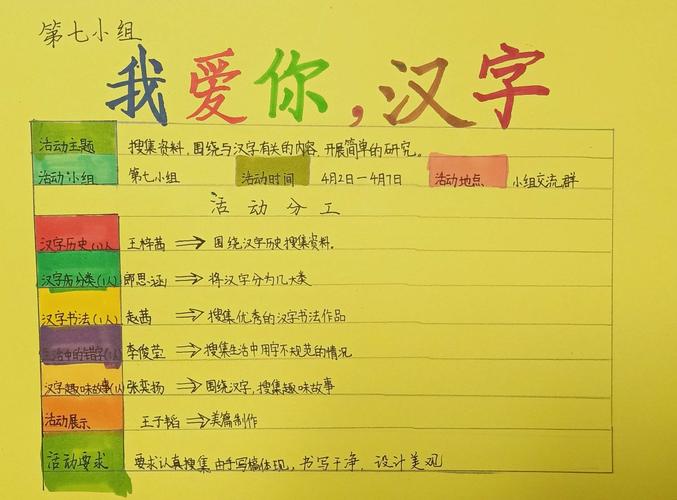 第七小组
我爱你,汉字
活动主题 搜集资料,围绕与汉字有关的内容,开展简单的研究。
活动小组 第七小组 活动时间 4月2日—4月7日 活动地点 小组交流群
活动分工
汉字历史(1人) 王梓茜 ⇒ 围绕汉字历史搜集资料。
汉字的分类(1人) 郎思涵 ⇒ 将汉字分为几大类
汉字书法(1人) 赵茜 ⇒ 搜集优秀的汉字书法作品
生活中的错字(1人) 李俊莹 ⇒ 搜集生活中用字不规范的情况
汉字趣味故事(1人) 张奕扬 ⇒ 围绕汉字,搜集趣味故事
活动展示 王子韬 ⇒ 美篇制作
活动要求 要求认真搜集,由手写稿体现,书写干净,设计美观